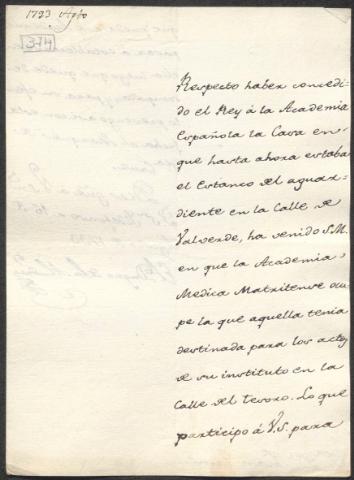 1793 Agto
374
Respecto haber concedi-
do el Rey à la Academia
Española la Casa en-
que hasta ahora estaba
el Estanco del aguar-
diente en la Calle de
Valverde, ha venido S.M.
en que la Academia
Medica Matritense ocu-
pe la que aquella tenia
destinada para los actos
de su instituto en la
Calle del tesoro. Lo que
participo à V.S. para